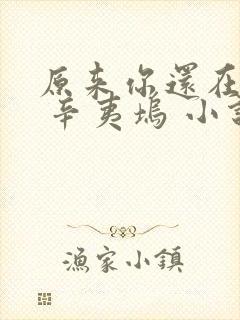 原来你還在
辛夷塢 小
漁家小鎮